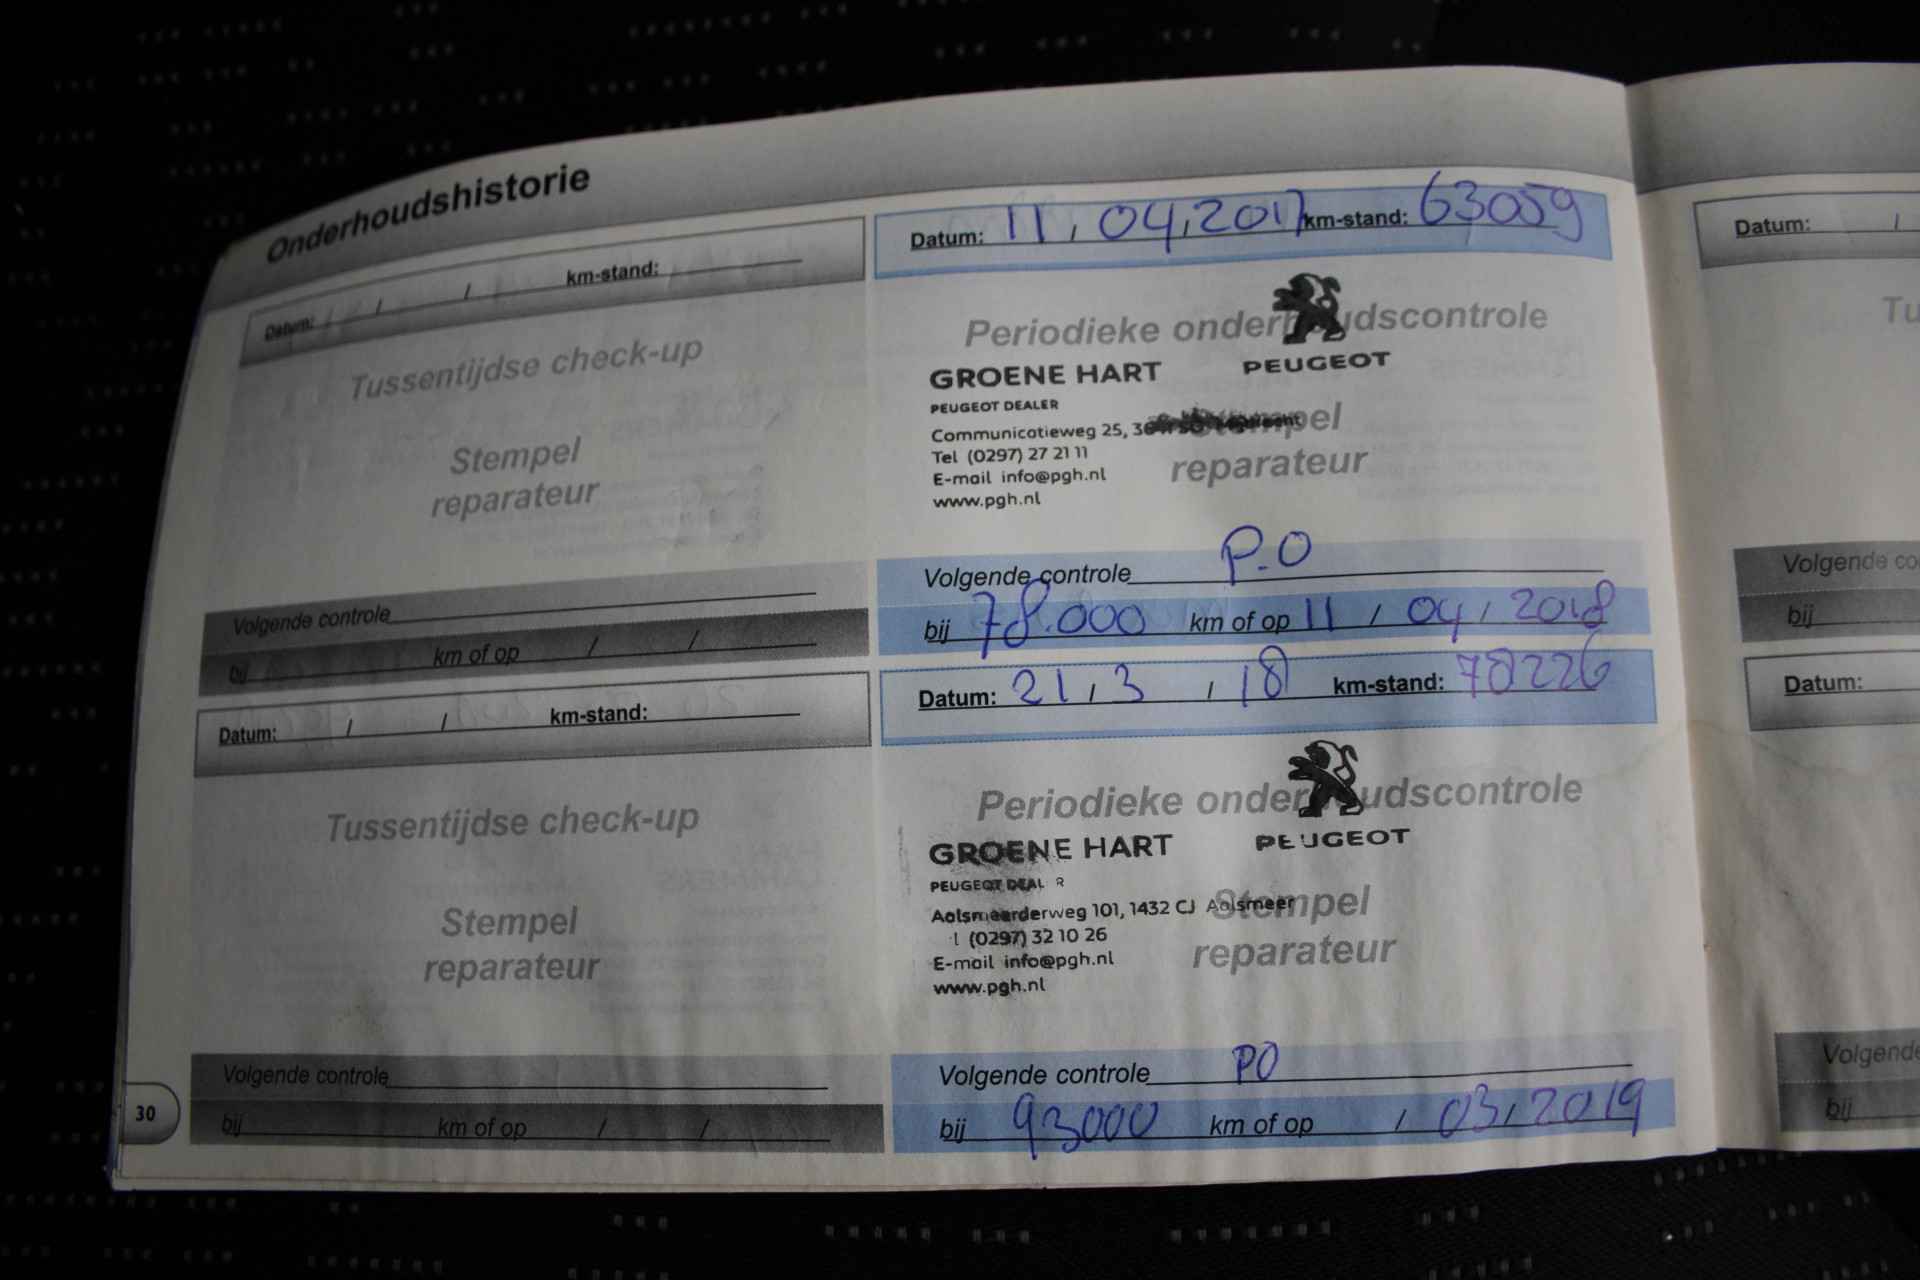 Onderhoudshistorie
Datum: / / km-stand:
Tussentijdse check-up
Stempel
reparateur
Volgende controle
bij km of op / /
Datum: / / km-stand:
Tussentijdse check-up
Stempel
reparateur
Volgende controle
bij km of op / /
30
Datum: 11 / 04 / 2017 km-stand: 63059
Periodieke onderhoudscontrole
GROENE HART PEUGEOT
PEUGEOT DEALER
Communicatieweg 25, Stempel
Tel (0297) 27 21 11
E-mail info@pgh.nl reparateur
www.pgh.nl
Volgende controle P.O
bij 78.000 km of op 11 / 04 / 2018
Datum: 21 / 3 / 18 km-stand: 78226
Periodieke onderhoudscontrole
GROENE HART PEUGEOT
PEUGEOT DEAL R
Aalsmeerderweg 101, 1432 CJ Aalsmeer Stempel
l (0297) 32 10 26
E-mail info@pgh.nl reparateur
www.pgh.nl
Volgende controle PO
bij 93000 km of op / 03 / 2019
Datum: /
Tu
Volgende co
bij
Datum:
Volgende
bij